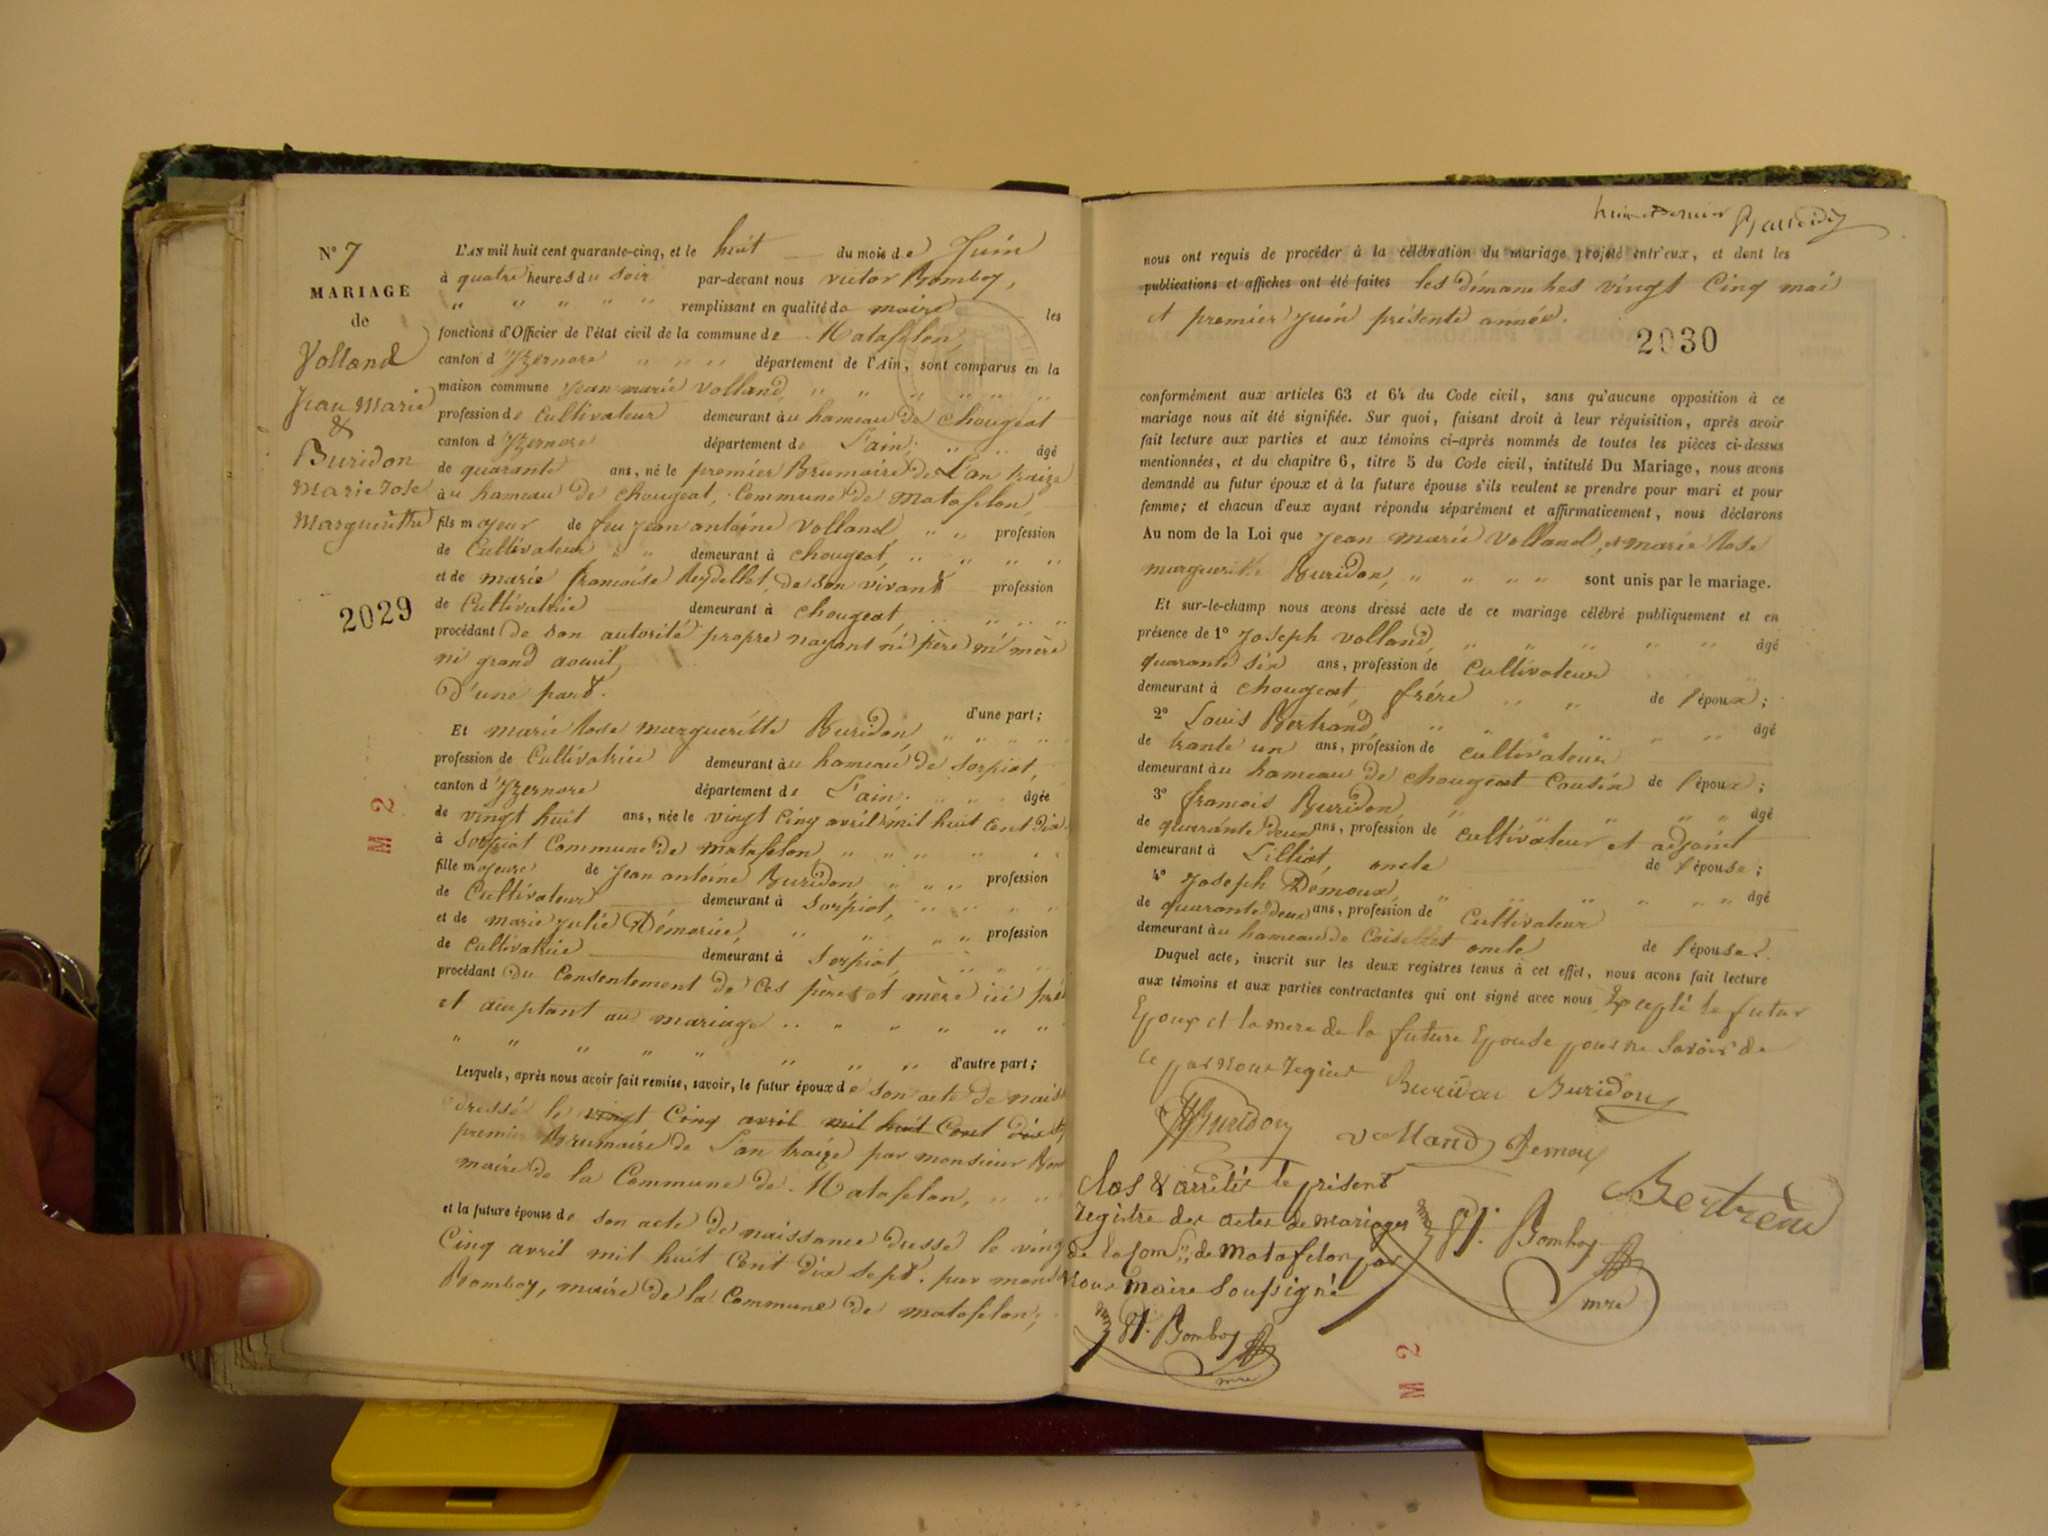 N° 7
MARIAGE
de
Volland
Jean Marie
&
Buridon
Marie Rose
Margueritte
2029
M 2
L'AN mil huit cent quarante-cinq, et le huit du mois de Juin
à quatre heures du soir par-devant nous victor Bomboy,
" " " " " remplissant en qualité de maire les
fonctions d'Officier de l'état civil de la commune de Matafelon,
canton d'Yzernore " " " " département de l'Ain, sont comparus en la
maison commune jean marie volland, " " " " "
profession de Cultivateur demeurant au hameau de chougeat
canton d'Yzernore département de L'ain, " " âgé
de quarante ans, né le premier Brumaire de L'an traize
à u hameau de chougeat, Commune de Matafelon,
fils majeur de feu jean antoine Volland, " " profession
de Cultivateur " " demeurant à chougeat, " " " "
et de marie francoise Reydellet, de son vivant profession
de Cultivatrice demeurant à chougeat, " " " "
procédant de son autorité propre nayant ni père ni mère
ni grand aouil,
D'une part.
d'une part;
Et marie Rose margueritte Buridon, " " " "
profession de Cultivatrice demeurant au hameau de Sorpiat,
canton d'Yzernore département de L'ain. " " " âgée
de vingt huit ans, née le vingt Cinq avril mil huit Cent dix
à Sorpiat Commune de matafelon " " " " " "
fille majeure de jean antoine Buridon " " " profession
de Cultivateur demeurant à Sorpiat, " " " "
et de marie julie Démarie, " " " " profession
de Cultivatrice demeurant à Sorpiat, " " "
procédant du Consentement de Ces père et mère ici pré
et aceptant au mariage " " " " " "
" " " " " " " " d'autre part;
Lesquels, après nous avoir fait remise, savoir, le futur époux de son acte de nais
dressé le vingt Cinq avril mil huit Cent dix
premier Brumaire de L'an traize par monsieur Bom
maire de la Commune de Matafelon, " "
et la future épouse de son acte de naissance dressé le ving
Cinq avril mil huit Cent dix sept. par mons
Bomboy, maire de la Commune de matafelon;
nous ont requis de procéder à la célébration du mariage projeté entr'eux, et dont les
publications et affiches ont été faites les dimanches vingt Cinq mai
et premier juin présente année.
2030
conformément aux articles 63 et 64 du Code civil, sans qu'aucune opposition à ce
mariage nous ait été signifiée. Sur quoi, faisant droit à leur réquisition, après avoir
fait lecture aux parties et aux témoins ci-après nommés de toutes les pièces ci-dessus
mentionnées, et du chapitre 6, titre 5 du Code civil, intitulé Du Mariage, nous avons
demandé au futur époux et à la future épouse s'ils veulent se prendre pour mari et pour
femme; et chacun d'eux ayant répondu séparément et affirmativement, nous déclarons
Au nom de la Loi que jean marie volland, et marie Rose
margueritte Buridon, " " " " sont unis par le mariage.
Et sur-le-champ nous avons dressé acte de ce mariage célébré publiquement et en
présence de 1° Joseph volland, " " " " " âgé
quarante six ans, profession de Cultivateur
demeurant à chougeat, frére " " de l'époux;
2° Louis Bertrand " " " " " âgé
de trante un ans, profession de cultivateur
demeurant au hameau de chougeat Cousin de l'époux;
3° francois Buridon, " " " " " âgé
de quarante deux ans, profession de cultivateur et adjoint
demeurant à Lilliat, oncle de l'épouse;
4° Joseph Démoux, " " " " " âgé
de quarante deux ans, profession de Cultivateur
demeurant au hameau de Coiselet oncle de l'épouse.
Duquel acte, inscrit sur les deux registres tenus à cet effet, nous avons fait lecture
aux témoins et aux parties contractantes qui ont signé avec nous Excepté le futur
Epoux et la mere de la future Epouse pour ne Savoir de
ce par nous requis Buridon Buridon
Buridon volland Demoux
Bertrand
Clos & arrêté le présent
registre des actes de mariages
de la Com.ne de Matafelon par
nous maire Soussigné
Vr. Bomboy
mre
Vr. Bomboy
mre
M 2